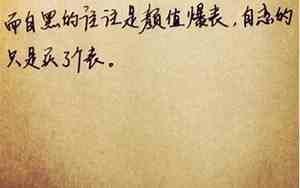 而自黑的往往是颜值爆表，自恋的
只是买了个表。